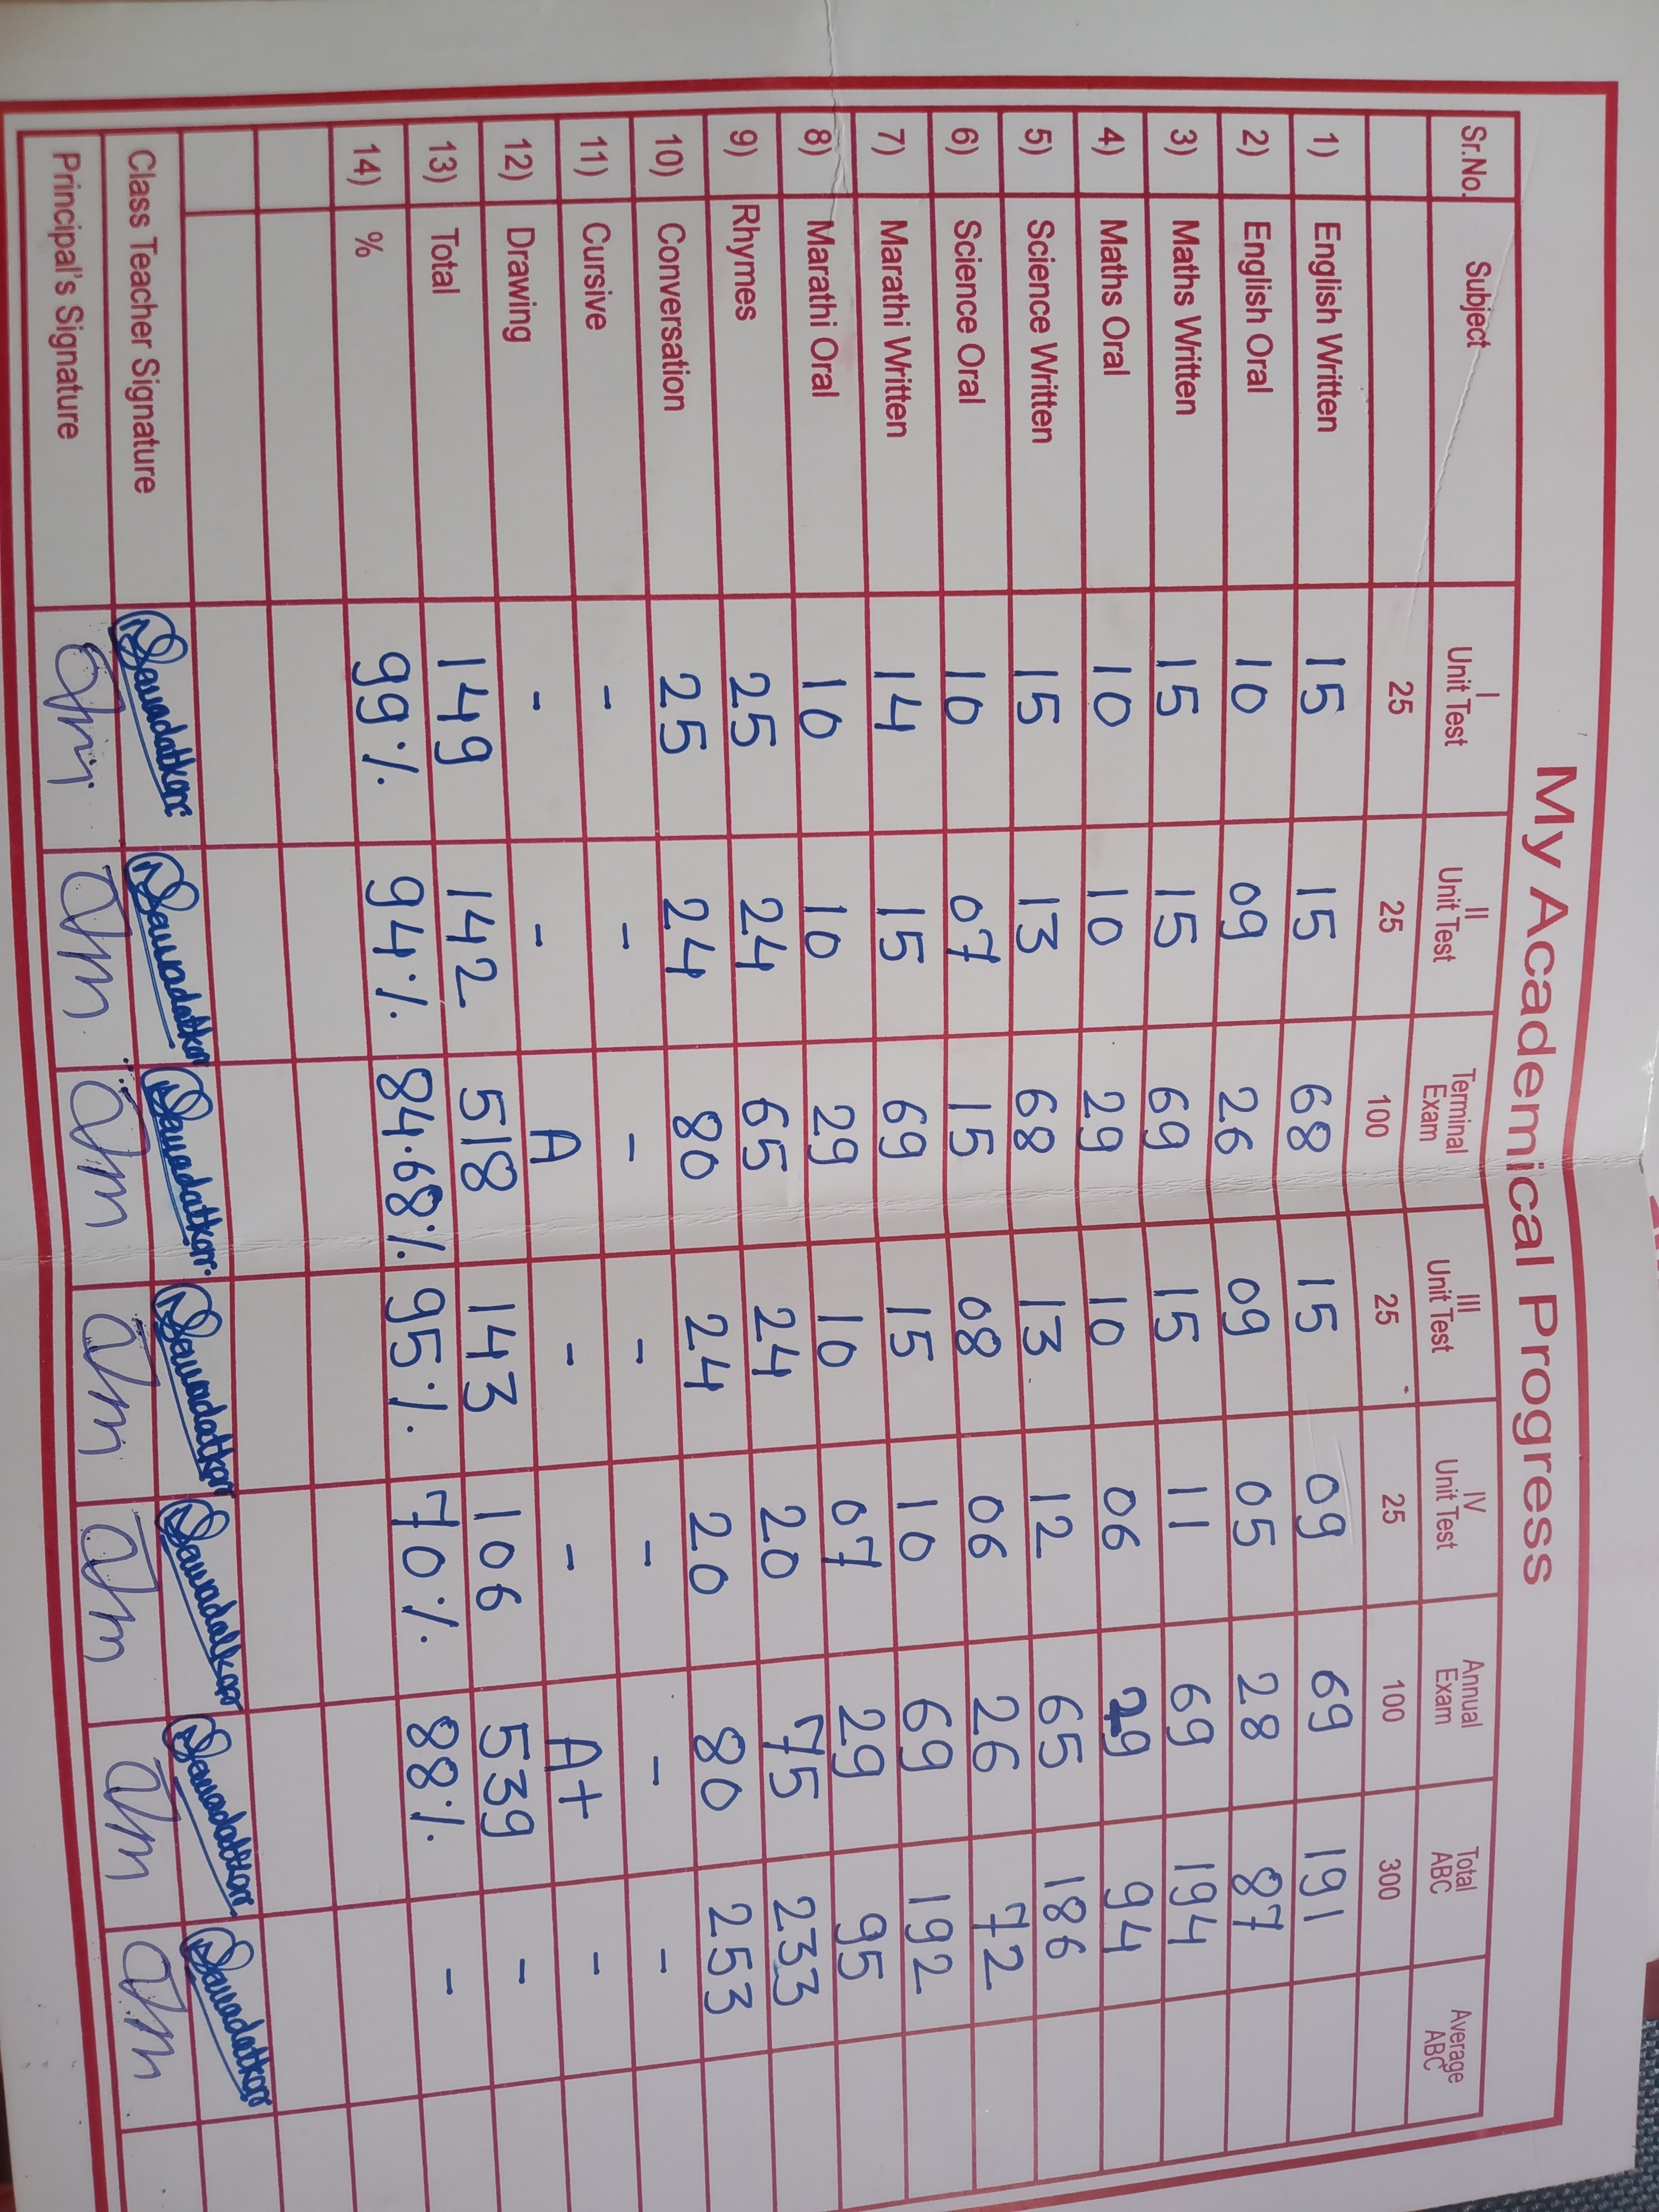 My Academical Progress
Sr.No. Subject I Unit Test II Unit Test Terminal Exam III Unit Test IV Unit Test Annual Exam Total ABC Average ABC
25 25 100 25 25 100 300
1) English Written 15 15 68 15 09 69 191
2) English Oral 10 09 26 09 05 28 87
3) Maths Written 15 15 69 15 11 69 194
4) Maths Oral 10 10 29 10 06 29 94
5) Science Written 15 13 68 13 12 65 186
6) Science Oral 10 07 15 08 06 26 72
7) Marathi Written 14 15 69 15 10 69 192
8) Marathi Oral 10 10 29 10 07 29 95
9) Rhymes 25 24 65 24 20 75 233
10) Conversation 25 24 80 24 20 80 253
11) Cursive - - - - - - -
12) Drawing - - A - - A+ -
13) Total 149 142 518 143 106 539 -
14) % 99% 94% 84.68% 95% 70% 88% -
Class Teacher Signature
Principal's Signature